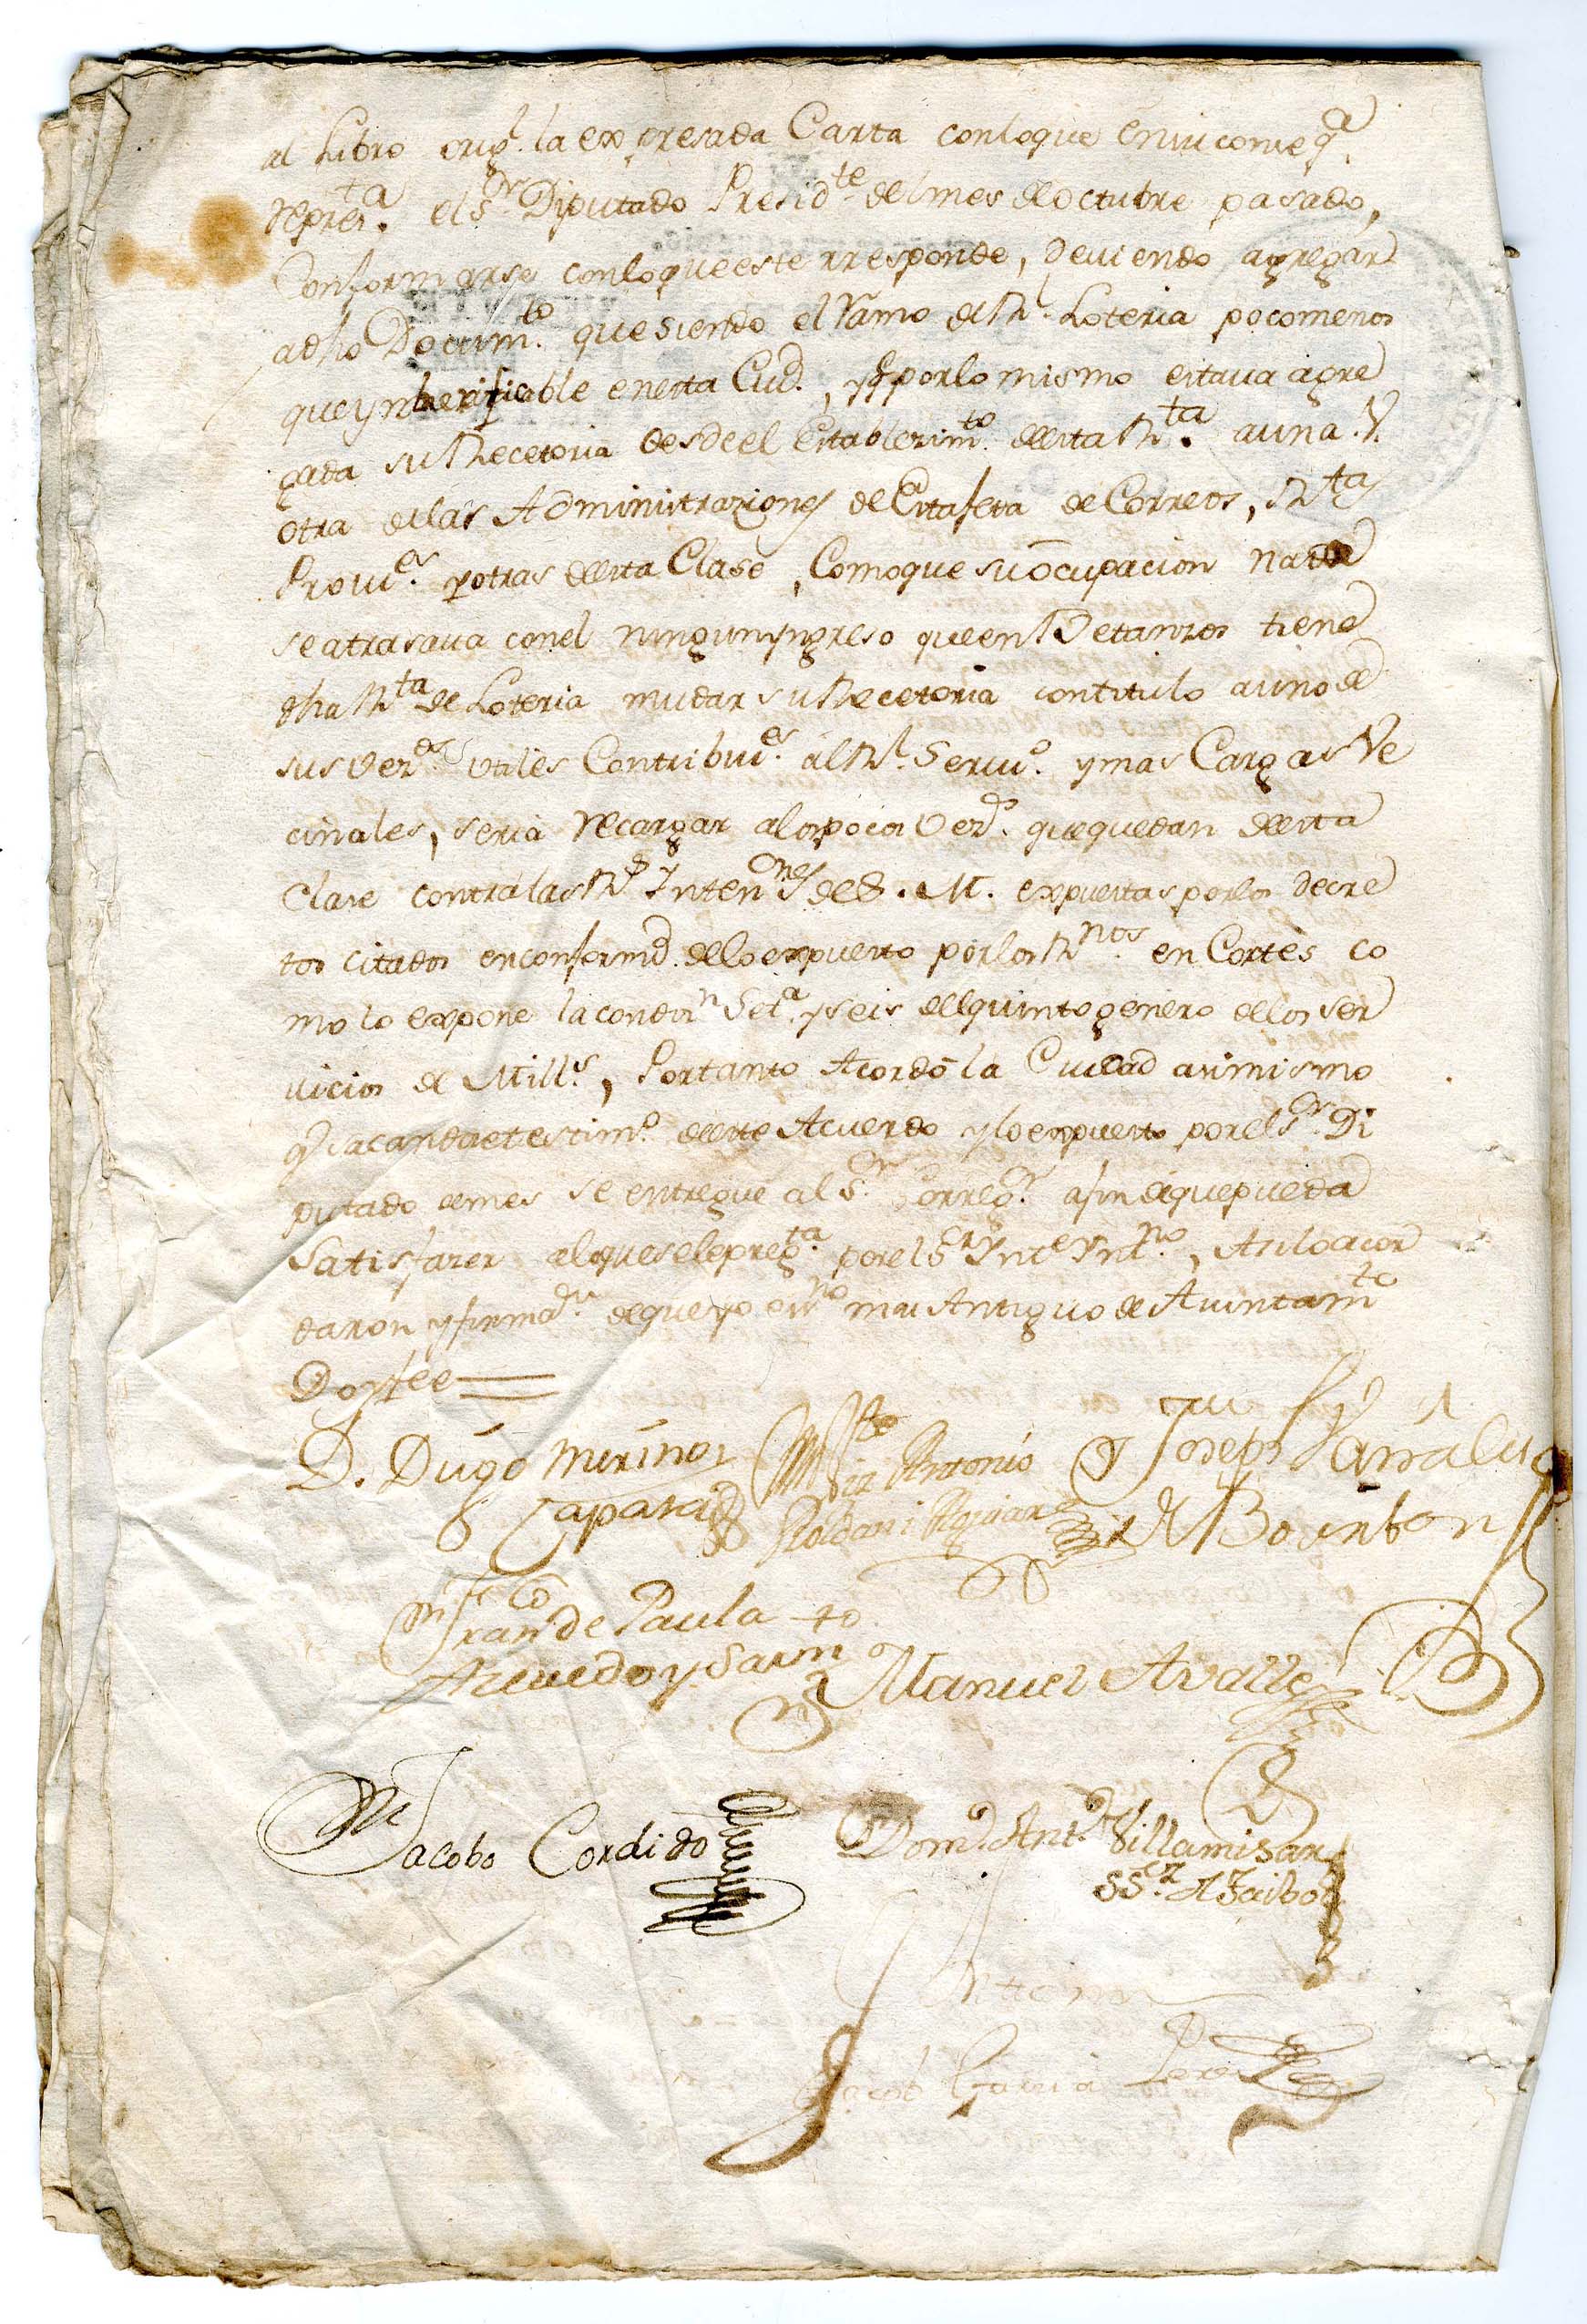 al Libro orig.l la expresada Carta con lo que en su conseq.a
repres.ta el S.or Diputado Presid.te del mes de octubre pasado,
Conformarse con lo que este rresponde, deviendo agregar
a dho Docum.to que siendo el Ramo de R.l Loteria poco menos
que ynberificable en esta Ciud., y por lo mismo estava agre
gada su Recetoria desde el Establezim.to de esta R.ta a una V.
otra de las Administraziones de Estafeta de Correos, R.tas
Prov.es y otras de esta Clase, Como que su ocupacion nada
se atrasava con el ningun yngreso que en Betanzos tiene
dha R.ta de Loteria mudar su Recetoria con titulo a uno de
sus vez.os utiles Contribu.es al R.l Servi.o y mas Cargas Ve
cinales, seria recargar a los pocos vez.os que quedan de esta
Clase contra las R.s Inten.ones de S. M. expuestas por los decre
tos citados en conformd. de lo expuesto por los R.nos en Cortes co
mo lo expone la condiz.n Set.a y seis del quinto genero de los ser
vicios de Mill.s, Portanto Acordó la Ciudad asimismo
q.e sacandose testim.o de este Acuerdo y lo expuesto por el S.or Di
putado de mes se entregue al S.or Correg.r a fin de que pueda
Satisfazer al que se le preg.ta por el S.or Ynt.e Ynt.no, Asi lo acor
daron y firma.n de que yo es.no mas Antiguo de Aiuntam.to
Doy fee
D. Diego Merino i
Zapata
Antonio
Roldan i Aguiar
Joseph
Fran.co de Paula
Azevedo y Sarm.to
Manuel Avalle
Jacobo Cordido
Dom.o Ant.o Villamisar
Ante mi
Jacob Garcia Perez